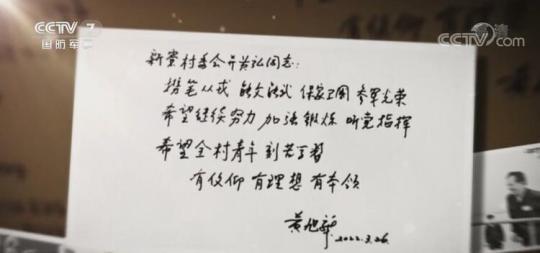 CCTV 7
国防军事
CCTV.com
新寮村委会并 同志：
携笔从戎 能文能武 保家卫国 参军光荣
希望继续努力 加强锻炼 听党指挥
希望全村青年 刻苦学习
有信仰 有理想 有本领
黄旭华
2022.3.26